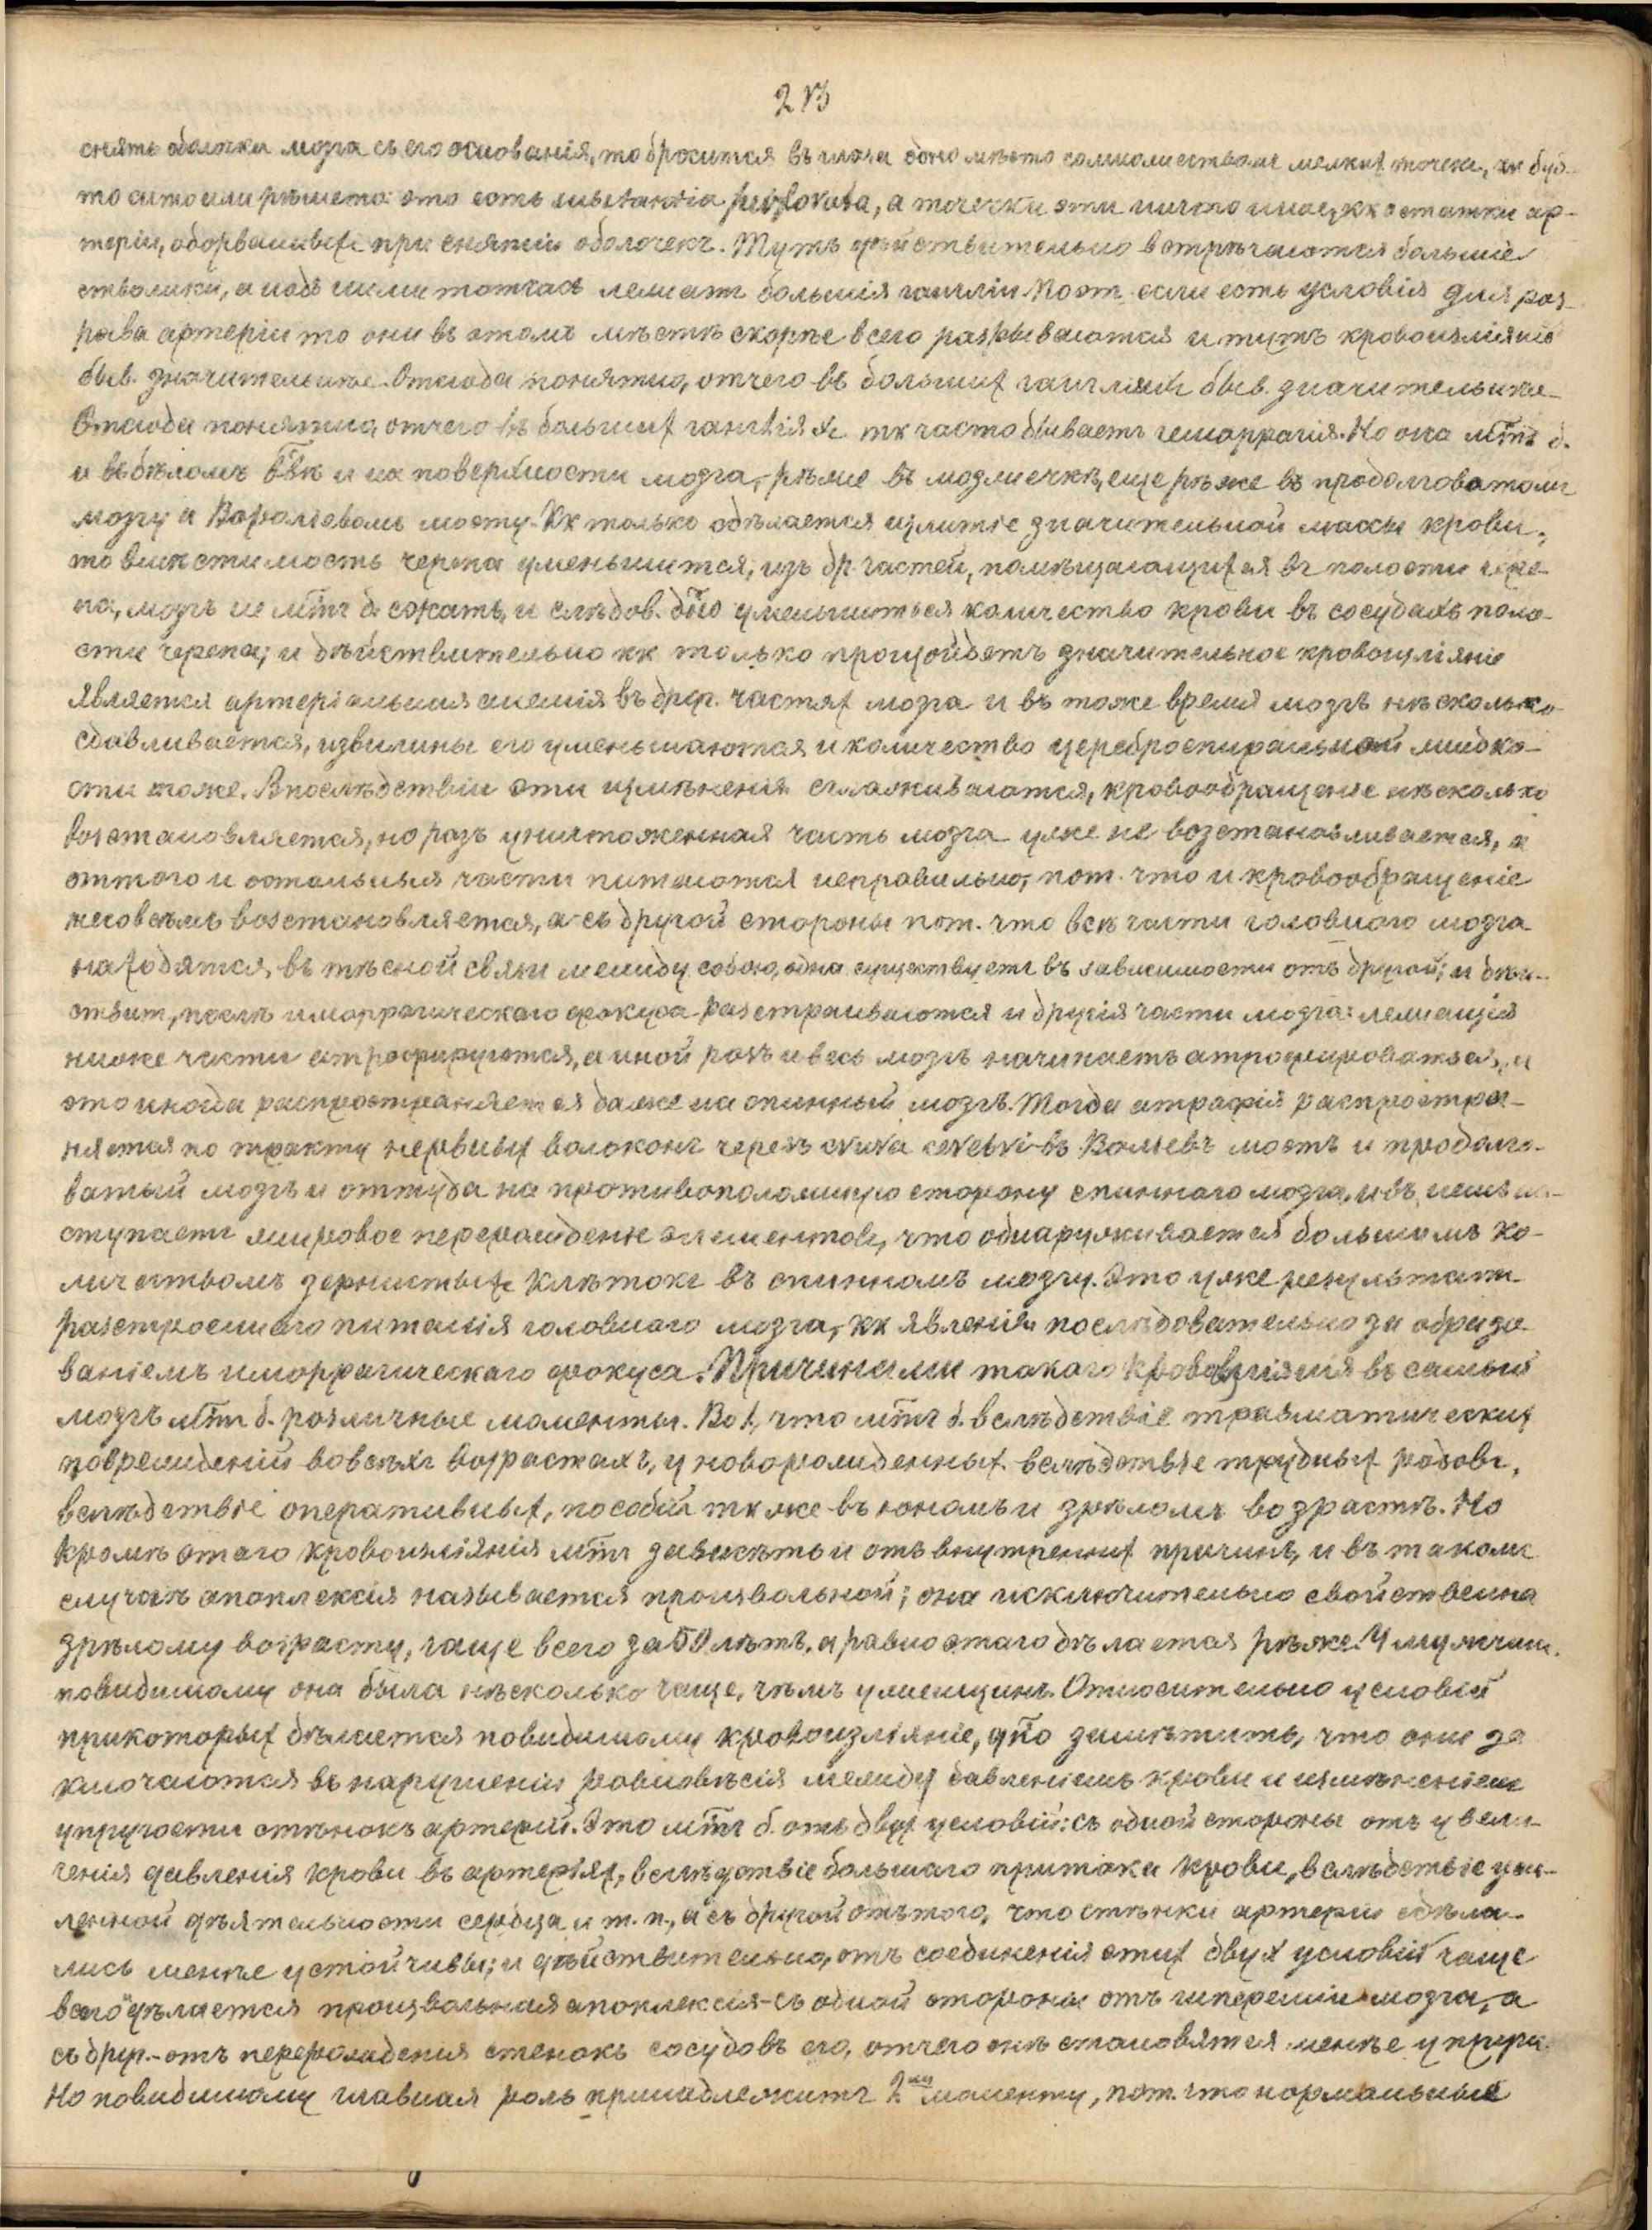 213
снять оболочки мозга съ его основанія, то бросится въ глаза одно мѣсто со множествомъ мелкихъ точекъ, кк буд-
то сито или рѣшето: это есть substantia perforata, а точечки эти ничто иное, кк остатки ар-
терій, оборванныхъ при снятіи оболочекъ. Тутъ дѣйствительно встрѣчаются большіе
стволики, а подъ ними тотчасъ лежатъ большія гангліи. Поэт. если есть условія для раз-
рыва артеріи то они въ этомъ мѣстѣ скорѣе всего разрываются и тутъ кровоизліяніе
быв. значительнѣе. Отсюда понятно, отчего въ большихъ гангліяхъ быв. значительнѣе
Отсюда понятно, отчего въ большихъ гангліяхъ тк часто бываетъ геморрагія. Но она мтъ б.
и въ бѣломъ ввѣ и на поверхности мозга, рѣже въ мозжечкѣ, еще рѣже въ продолговатомъ
мозгу и Вароліевомъ мосту. Кк только сдѣлается излитіе значительной массы крови,
то вмѣстимость черепа уменьшится; изъ др. частей, помѣщающихся въ полости чере-
па, мозгъ не мтъ б. сжатъ, и слѣдов. дно уменьшиться количество крови въ сосудахъ поло-
сти черепа; и дѣйствительно кк только произойдетъ значительное кровоизліяніе
является артеріальная анемія въ друг. частяхъ мозга и въ тоже время мозгъ нѣсколько
сдавливается, извилины его уменьшаются и количество цереброспиральной жидко-
сти тоже. Впослѣдствіи эти измѣненія сглаживаются, кровообращеніе нѣсколько
возстановляется, но разъ уничтоженная часть мозга уже не возстановливается, а
оттого и остальныя части питаются неправильно, пот. что и кровообращеніе
несовсѣмъ возстановляется, а съ другой стороны пот. что всѣ части головного мозга
находятся въ тѣсной связи между собою, одна существуетъ въ зависимости отъ другой; и дѣй-
ствит, послѣ гиморрагическаго фокуса разстраиваются и другія части мозга: лежащія
ниже части атрофируются, а иной разъ и весь мозгъ начинаетъ атрофироваться, и
это иногда распространяется даже на спинный мозгъ. Тогда атрафія распростра-
няется по тракту нервныхъ волоконъ черезъ crura cerebri въ Воліевъ мостъ и продолго-
ватый мозгъ и оттуда на противоположную сторону спинного мозга, и въ немъ на-
ступаетъ жировое перерожденіе элементовъ, что обнаруживается большимъ ко-
личествомъ зернистыхъ клѣтокъ въ спинномъ мозгу. Это уже результатъ
разстроеннаго питанія головного мозга, кк явленія послѣдовательно за образо-
ваніемъ гиморрагическаго фокуса. Причинами такого кровоизліянія въ самый
мозгъ мтъ б. различные моменты. Во 1, что мтъ б. вслѣдствіе травматическихъ
поврежденій во всѣхъ возрастахъ, у новорожденныхъ вслѣдствіе трудныхъ родовъ,
вслѣдствіе оперативныхъ, пособій тк же въ юномъ и зрѣломъ возрастѣ. Но
кромѣ этаго кровоизліянія мтъ зависѣть и отъ внутреннихъ причинъ, и въ такомъ
случаѣ апоплексія называется произвольной; она исключительно свойственна
зрѣлому возрасту, чаще всего за 50 лѣтъ, а равно этаго дѣлается рѣже. У мужчин.
повидимому она была нѣсколько чаще, чѣмъ у женщинъ. Относительно условій
при которыхъ дѣлается повидимому кровоизліяніе, дно замѣтить, что они за
ключаются въ нарушеніи равновѣсія между давленіемъ крови и измѣненіемъ
упругости стѣнокъ артерій. Это мтъ б. отъ двухъ условій: съ одной стороны отъ увели-
ченія давленія крови въ артеріяхъ, вслѣдствіе большаго притока крови, вслѣдствіе уси-
ленной дѣятельности сердца и т. п., а съ другой отъ того, что стѣнки артерій сдѣла-
лись менѣе устойчивы; и дѣйствительно, отъ соединенія этихъ двухъ условій чаще
всего дѣлается произвольная апоплексія - съ одной стороны отъ гипереміи мозга, а
съ друг. - отъ перерожденія стенокъ сосудовъ его, отчего онѣ становятся менѣе упруги.
Но повидимому главная роль принадлежитъ 2му моменту, пот. что нормальные